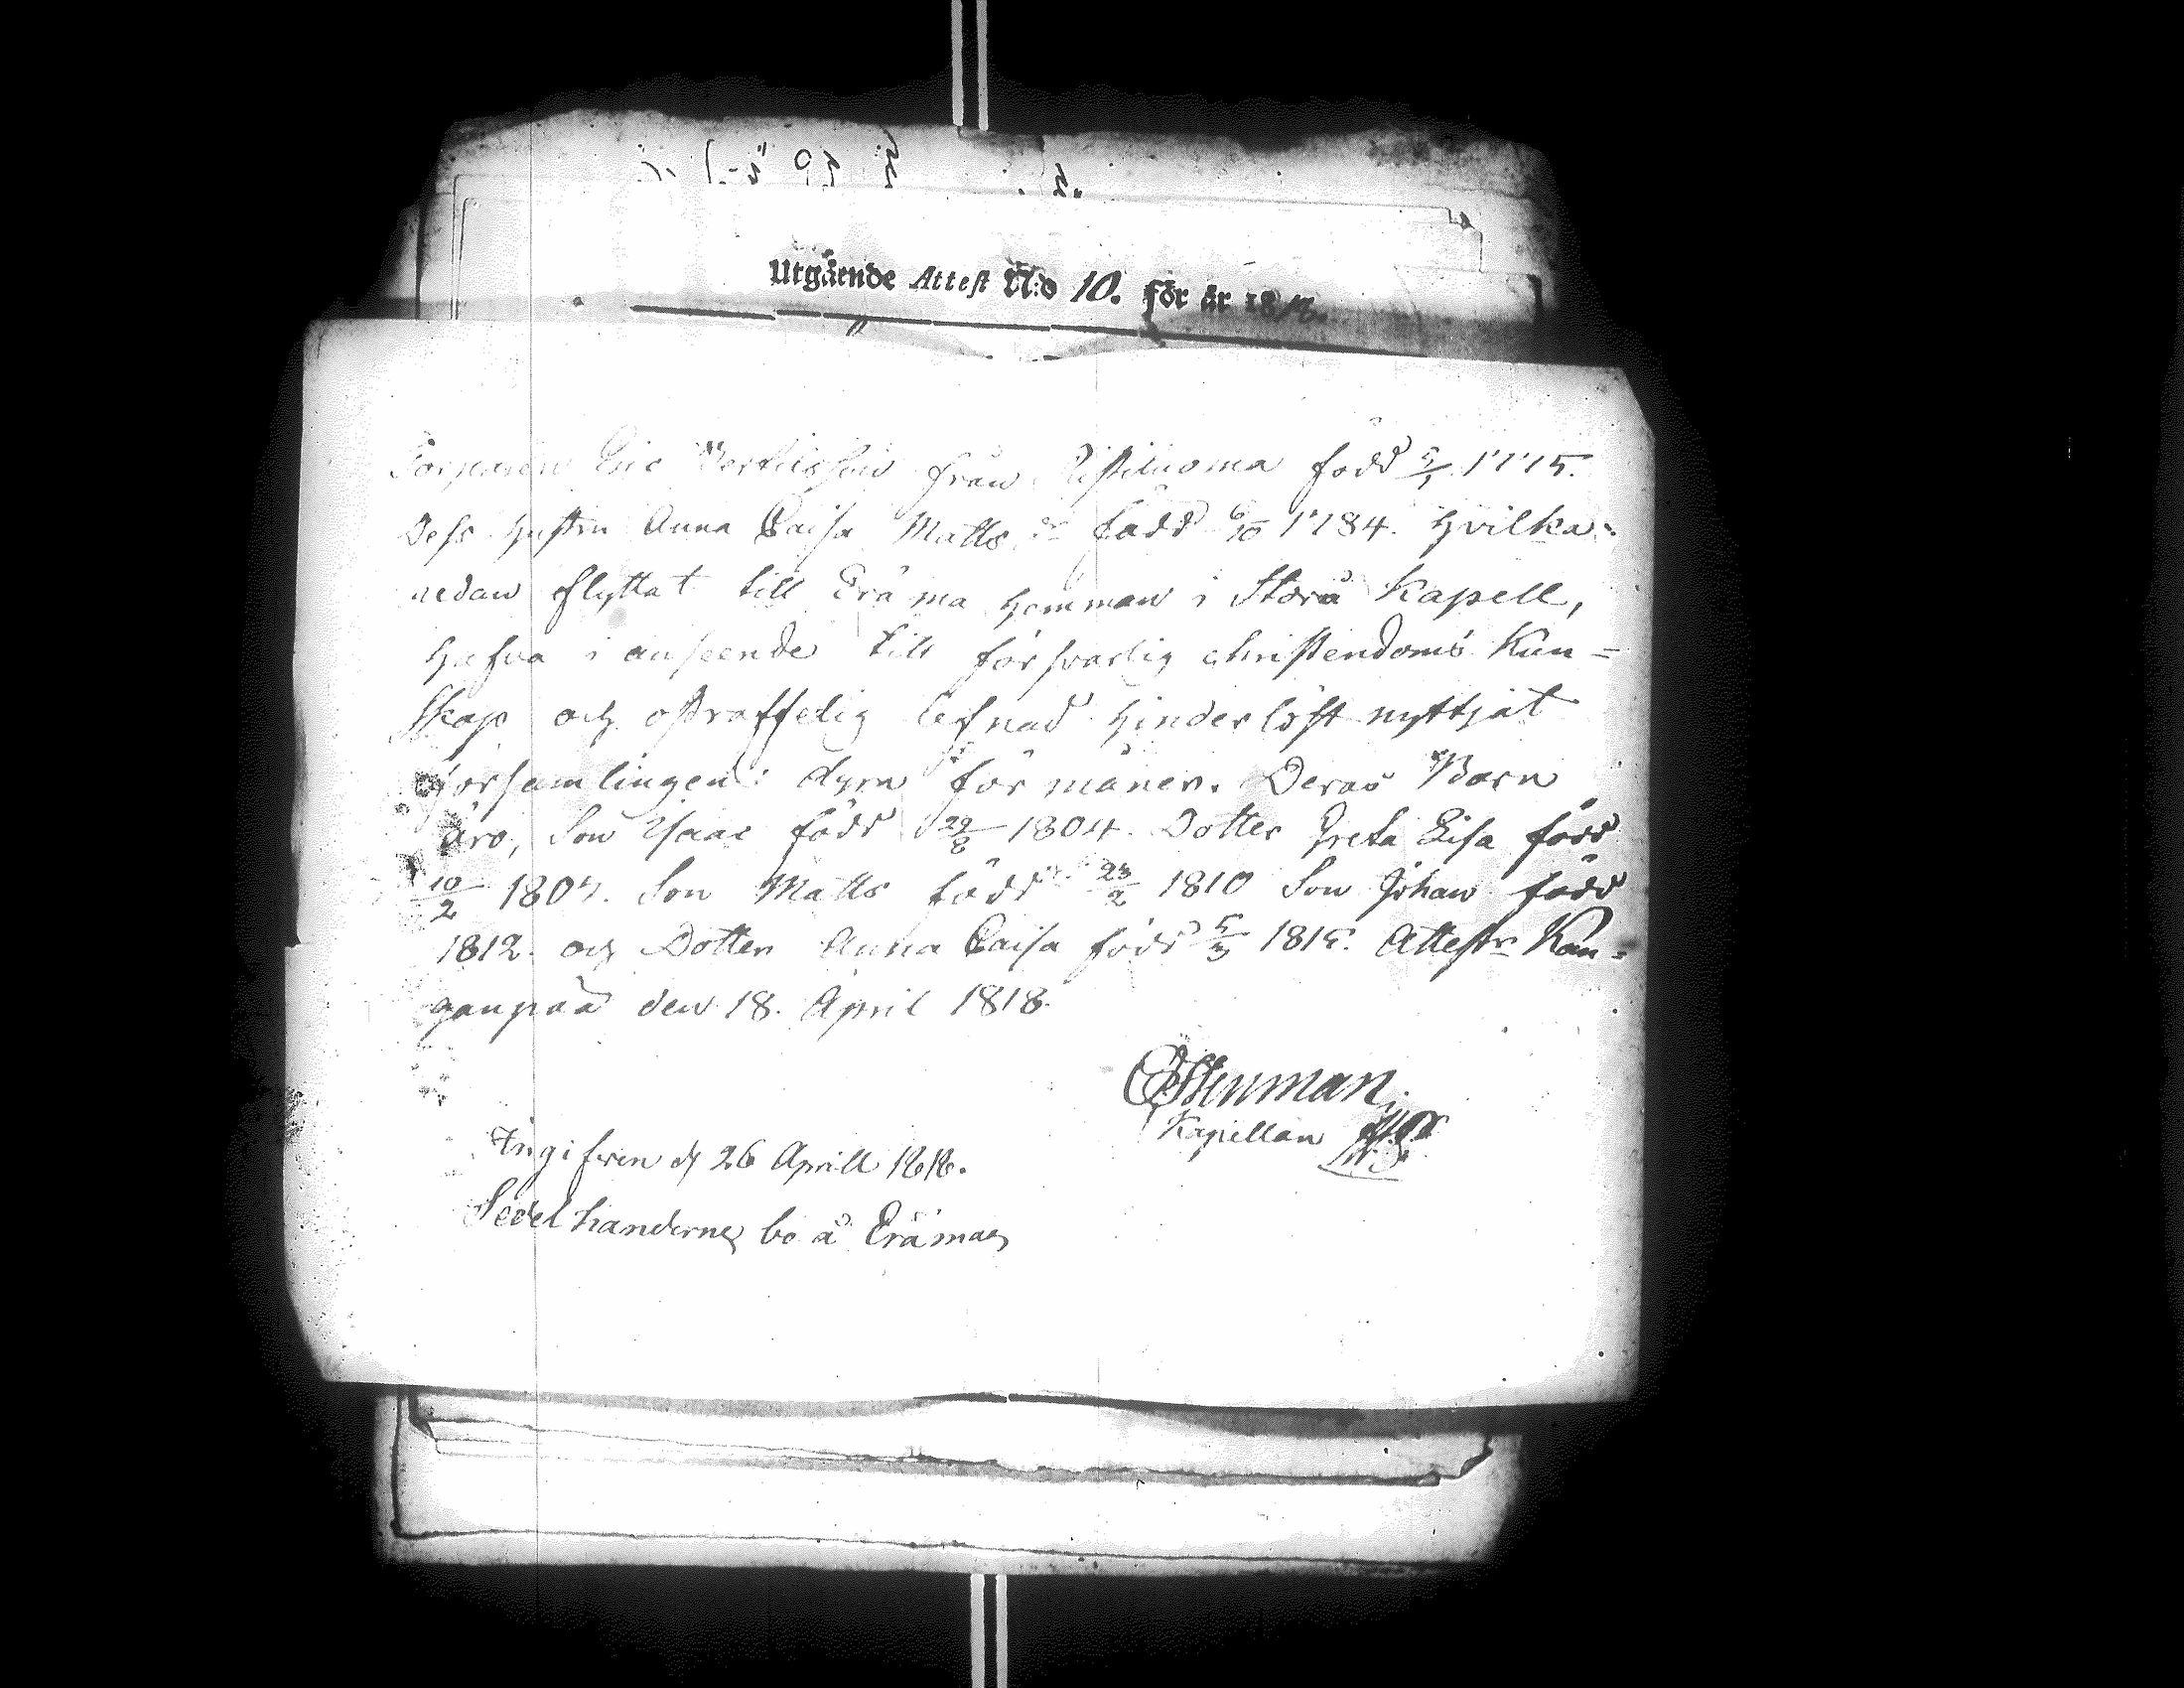 Utgående Attest N:o 10. för år 1818.
Torparen Eric Bertilsson från Ristiluoma född 5/1 1775.
Dess Hustru Anna Caisa Matts dr född 6/10 1784. Hvilka
nedan flyttat till Eräma Hemman i Storå Kapell,
Hafva i anseende till försvarlig christendoms Kun=
skap och ostraffelig lefnad Hinderlöst nyttjat
församlingens dyra förmåner. Deras Barn
äro, Son Isaac född 29/8 1804. Dotter Greta Lisa född
10/2 1807. Son Matts född 23/2 1810 Son Johan född
1812. och Dotter Anna Caisa född 5/3 1815. Attestr Kan=
ganpää den 18. April 1818.
Stenman.
Kapellan
Ingifven d 26 Aprill 1818.
Sedelhanderne bo å Erämaa